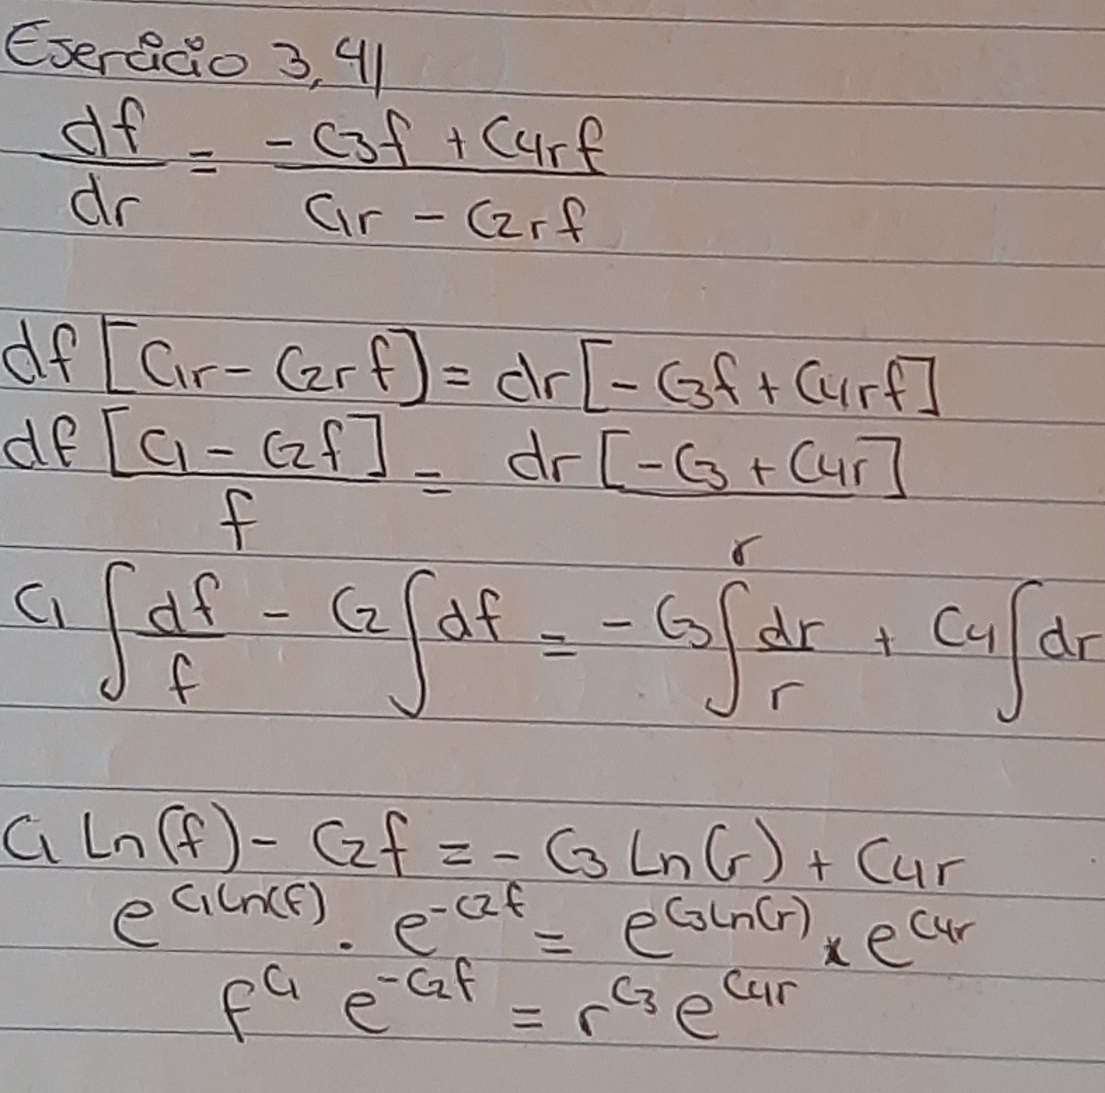 Esercicio 3,41
df/dr = (-C3f + C4rf)/(C1r - C2rf)
df[C1r - C2rf] = dr[-C3f + C4rf]
df[C1 - C2f]/f = dr[-C3 + C4r]/r
C1∫df/f - C2∫df = -C3∫dr/r + C4∫dr
C1 Ln(f) - C2f = -C3 Ln(r) + C4r
e^(C1Ln(f)) . e^(-C2f) = e^(C3Ln(r)) x e^(C4r)
f^C1 e^(-C2f) = r^C3 e^(C4r)